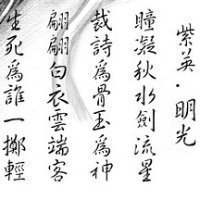 紫英·明光
瞳凝秋水劍流星
裁詩為骨玉為神
翩翩白衣雲端客
生死為誰一擲輕